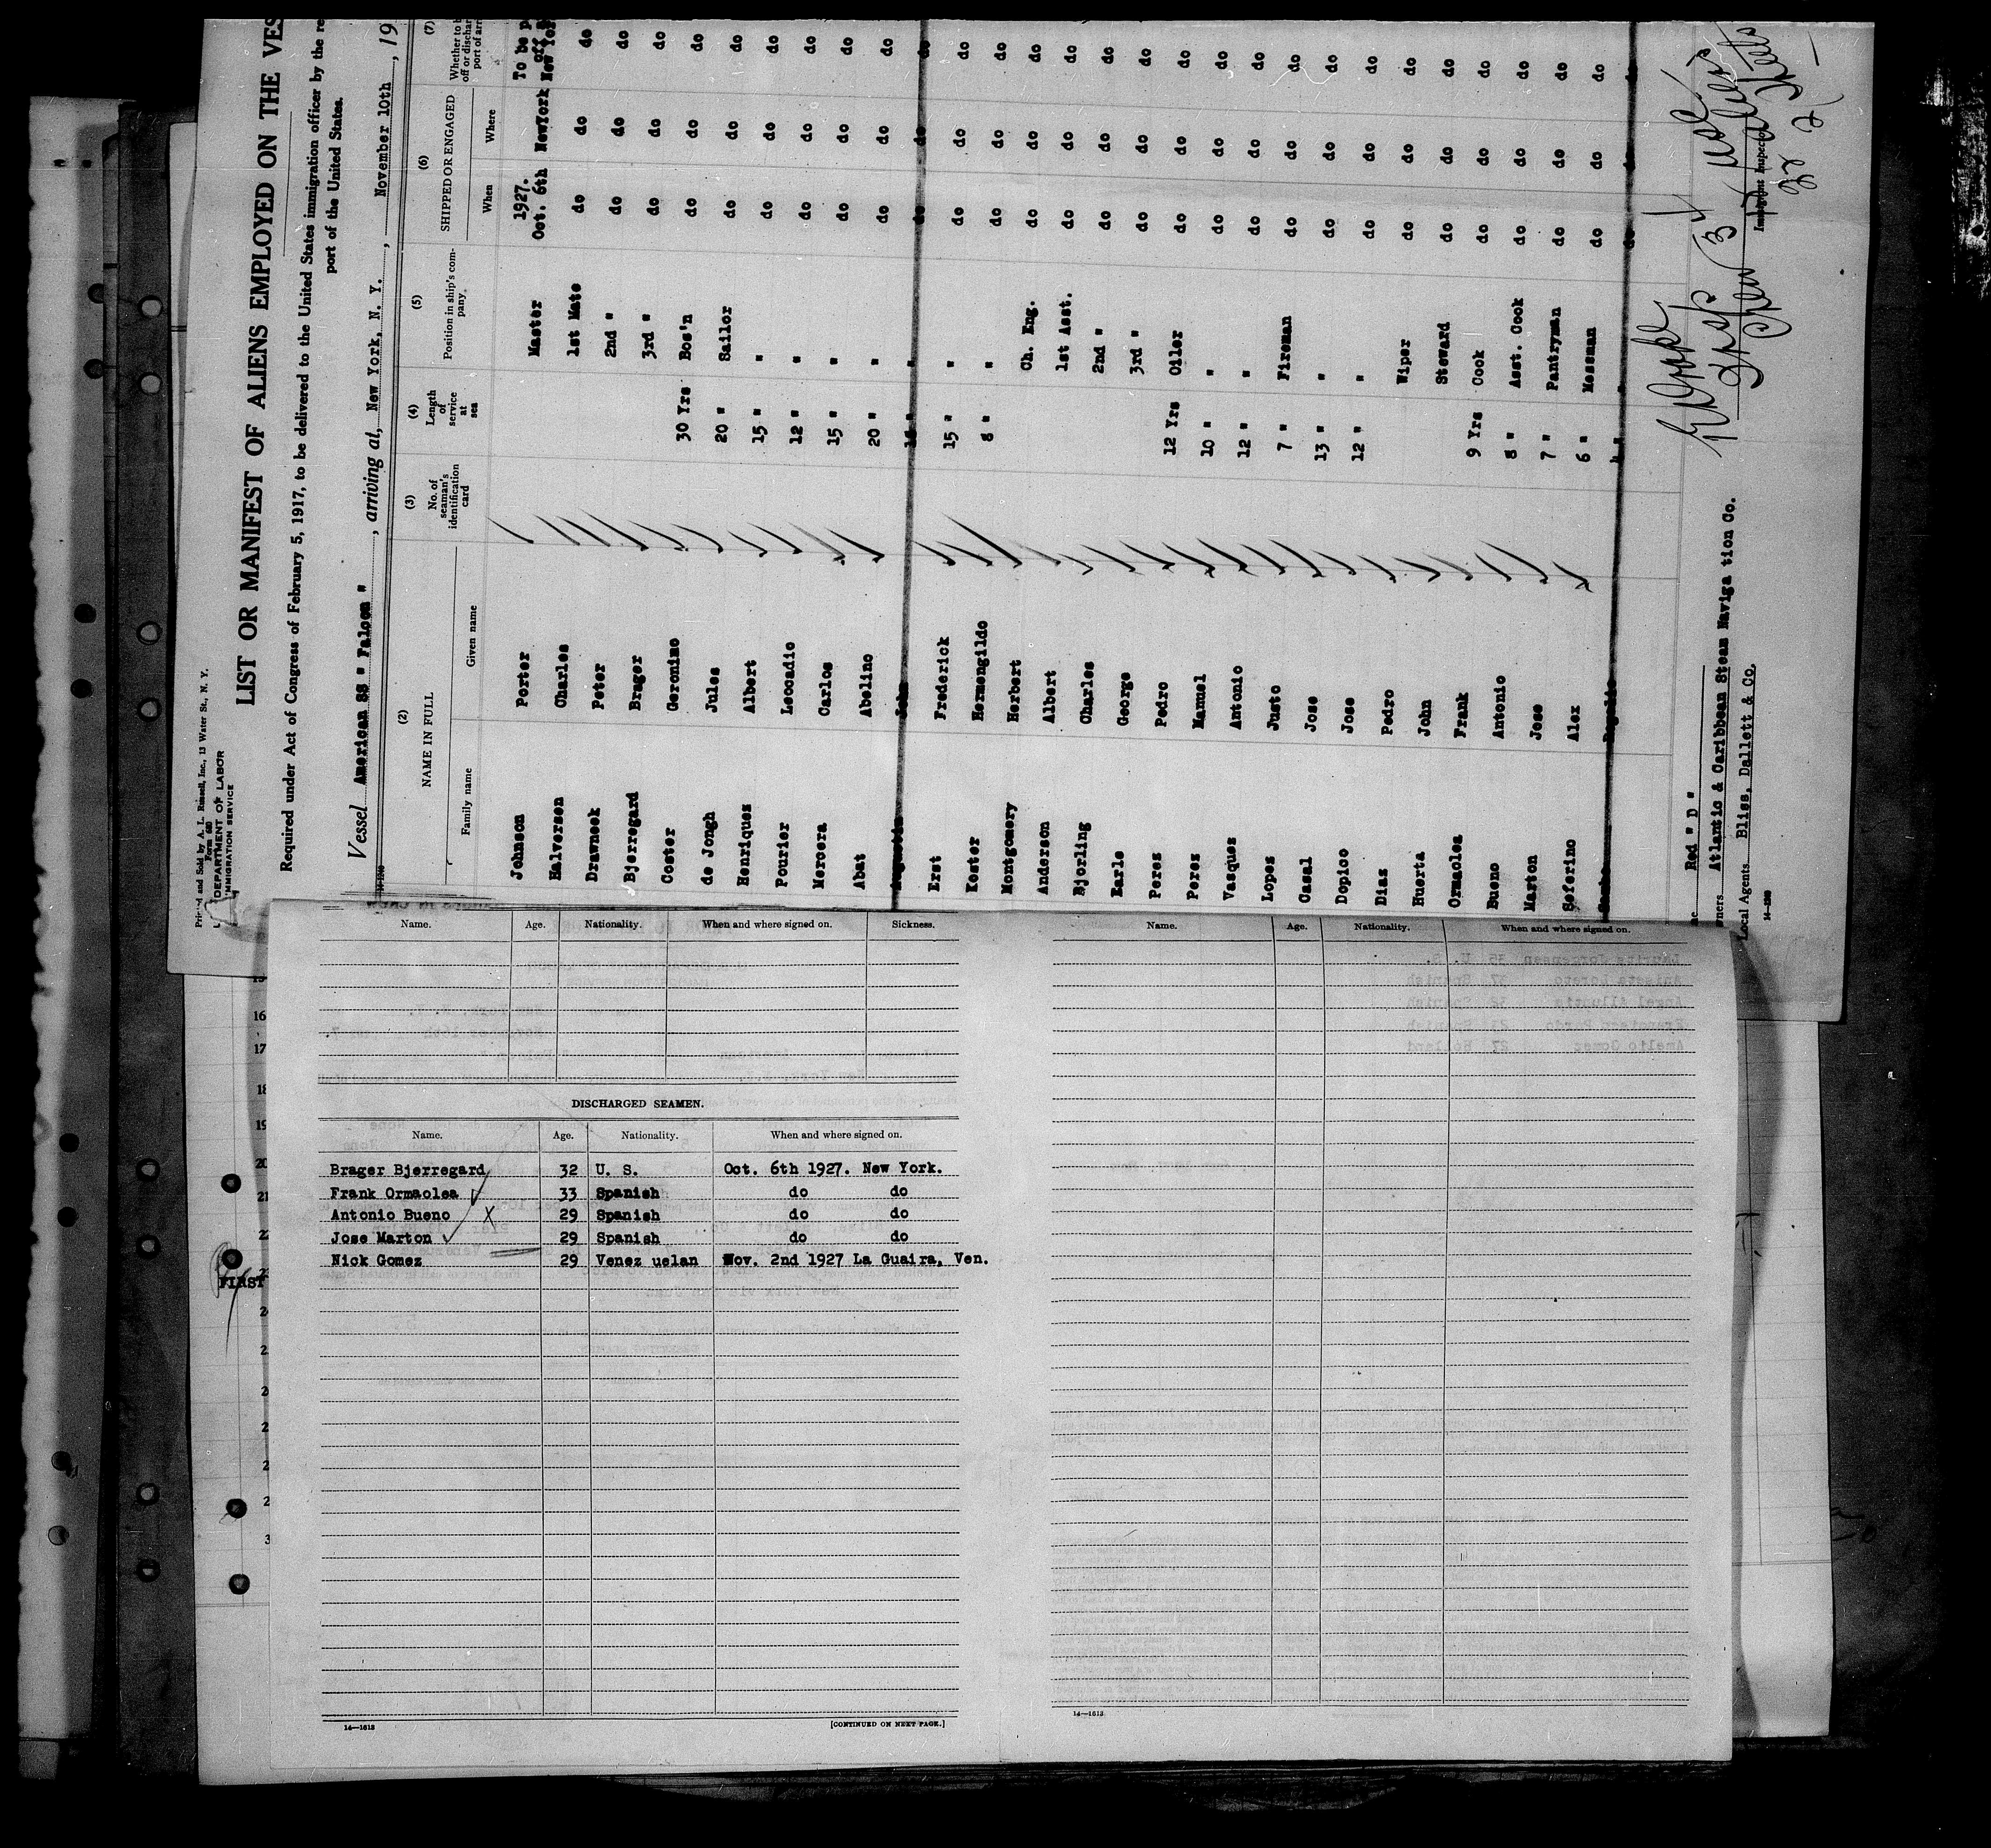 Printed and Sold by A. L. Russell, Inc., 13 Water St., N. Y.
Form 680
DEPARTMENT OF LABOR
IMMIGRATION SERVICE
LIST OR MANIFEST OF ALIENS EMPLOYED ON THE VES
Required under Act of Congress of February 5, 1917, to be delivered to the United States immigration officer by the re
port of the United States.
Vessel American SS " Falcon ", arriving at, New York, N. Y. , November 10th , 19
(2) (3) (4) (5) (6) (7)
NAME IN FULL No. of seaman's identification card Length of service at sea Position in ship's company SHIPPED OR ENGAGED Whether to b off or dischar port of arr
Family name Given name When Where
1927. To be p
Johnson Porter Master Oct. 6th NewYork off New Yor
Halversen Charles 1st Mate do do do
Drawneek Peter 2nd " do do do
Bjerregard Brager 3rd " do do do
Coster Geronimo 30 Yrs Bos'n do do do
de Jongh Jules 20 " Sailor do do do
Henriquez Albert 15 " " do do do
Pourier Leocadio 12 " " do do do
Mercera Carlos 15 " " do do do
Abat Abelino 20 " " do do do
Augustin John " do do do
Erst Frederick 15 " " do do do
Koster Hermengildo 8 " " do do do
Montgomery Herbert Ch. Eng. do do do
Anderson Albert 1st Asst. do do do
Bjorling Charles 2nd " do do do
Earle George 3rd " do do do
Perez Pedro 12 Yrs Oiler do do do
Perez Manuel 10 " " do do do
Vasques Antonio 12 " " do do do
Lopes Justo 7 " Fireman do do do
Casal Jose 13 " " do do do
Dopico Jose 12 " " do do do
Diaz Pedro Wiper do do do
Huerta John Steward do do do
Ormaolea Frank 9 Yrs Cook do do do
Bueno Antonio 8 " Asst. Cook do do do
Marton Jose 7 " Pantryman do do do
Seferino Alex 6 " Messman do do do
" " do do do
Red " D "
Atlantic & Caribbean Steam Naviga tion Co.
Local Agents. Bliss, Dallett & Co.
Immigrant Inspector
14-1240
Name. Age. Nationality. When and where signed on. Sickness.
16
17
18
19
20
FIRST
DISCHARGED SEAMEN.
Name. Age. Nationality. When and where signed on.
Brager Bjerregard 32 U. S. Oct. 6th 1927. New York.
Frank Ormaolea 33 Spanish do do
Antonio Bueno X 29 Spanish do do
Jose Marton 29 Spanish do do
Nick Gomez 29 Venez uelan Nov. 2nd 1927 La Guaira, Ven.
14—1613 [CONTINUED ON NEXT PAGE.]
Name. Age. Nationality. When and where signed on.
14—1613